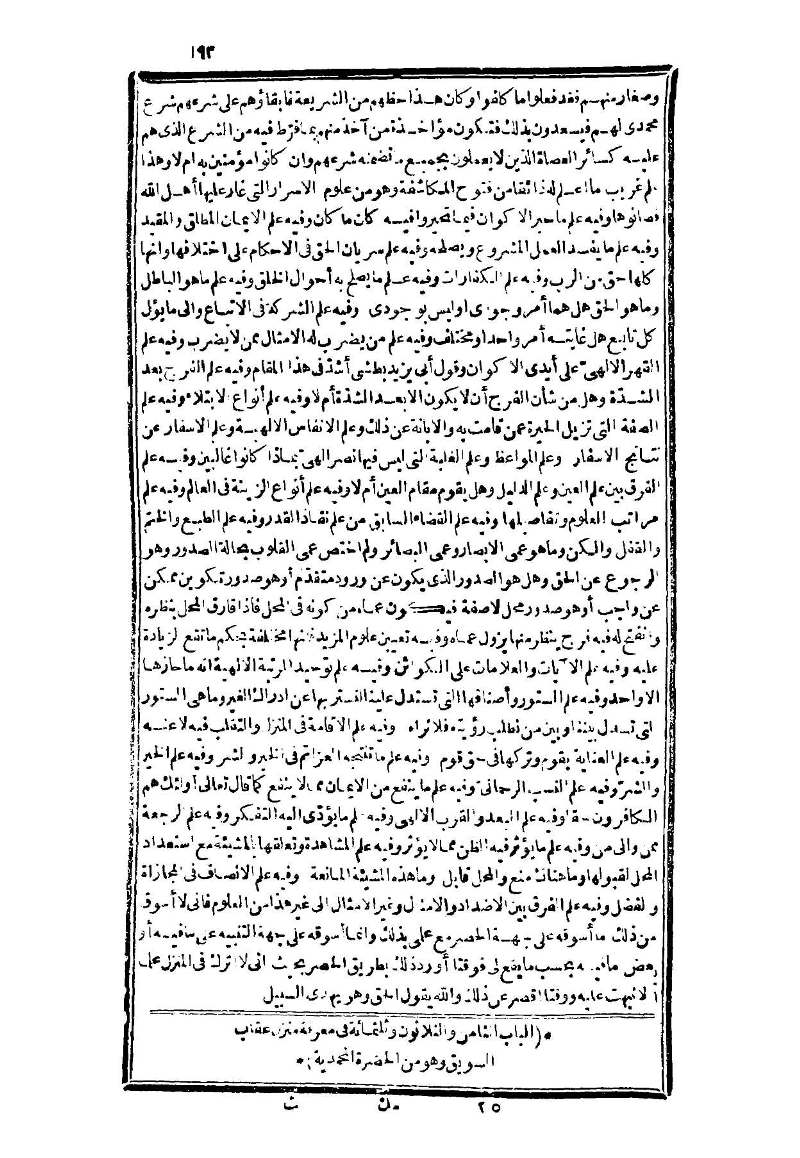 ١٩٣
وصغار منهم فقد فعلوا ما كلفوا وكان هذا حظهم من الشريعة فابقاؤهم على شرعهم شرع
محمدى لهم فيسعدون بذلك فتكون مؤاخذة من آخذ منهم بما فرط فيه من الشرع الذى هم
عليه كسائر العصاة الذين لا يعملون بجميع ما تضمنه شرعهم وان كانوا مؤمنين به ام لا وهذا
علم غريب ما اعلم له ذائقا من فتوح المكاشفة وهو من علوم الاسرار التى غار عليها أهل الله
فصانوها وفيه علم ما حير الاكوان فيما تحيروا فيه كان ما كان وفيه علم الايمان المطلق والمقيد
وفيه علم ما يفسد العمل المشروع ويصلحه وفيه علم سريان الحق فى الاحكام على اختلافها وانها
كلها حق من الرب وفيه علم الكفارات وفيه علم ما يصلح به أحوال الخلق وفيه علم ما هو الباطل
وما هو الحق هل هما أمر وجودى او ليس بوجودى وفيه علم الشركة فى الاتباع والى ما يؤل
كل تابع هل غايته أمر واحد او مختلف وفيه علم من يضرب له الامثال ممن لا يضرب وفيه علم
القهر الالهى على أيدى الاكوان وقول أبى يزيد بطشى أشد فى هذا المقام وفيه علم الفرج بعد
الشدة وهل من شأن الفرج أن لا يكون الا بعد الشدة أم لا وفيه علم أنواع الابتلاء وفيه علم
الصفة التى تزيل الحيرة عمن قامت به والابانة عن ذلك وعلم الانفاس الالهية وعلم الاسفار عن
نتائج الاسفار وعلم المواعظ وعلم الغلبة التى ليس فيها نصر الهى بماذا كانوا غالبين وفيه علم
الفرق بين علم العين وعلم الدليل وهل يقوم مقام العين أم لا وفيه علم أنواع الزينة فى العالم وفيه علم
مراتب العلوم وتفاصيلها وفيه علم القضاء السابق من علم نفاذ القدر وفيه علم الطبع والختم
والقفل والكن وما هو عمى الابصار وعمى البصائر ولم اختص عمى القلوب بحالة الصدور وهو
الرجوع عن الحق وهل هو الصدور الذى يكون عن ورود متقدم أو هو صدور تكوين ممكن
عن واجب أو هو صدور محل لا صفة فيكون عماه من كونه فى المحل فاذا فارق المحل بنظره
وانفتح له فيه فرج ينظر منها يزول عماه وفيه تعيين علوم المزيد فانها مختلفة بحكم ما تقع الزيادة
عليه وفيه علم الآيات والعلامات على الكوائن وفيه علم توحيد المرتبة الالهية انه ما حازها
الا واحد وفيه علم الستور وأصنافها التى تستدل عليها لتستر بها عن ادراك الغير وما هى الستور
التى تسدل بينه وبين من تطلب رؤيته فلا تراه وفيه علم الاقامة فى المنزل والتقلب فيه لا عنه
وفيه علم العناية بقوم وتركها فى حق قوم وفيه علم ما تنتجه العزائم فى الخير والشر وفيه علم الخير
والشر وفيه علم النفس الرحمانى وفيه علم ما ينفع من الايمان مما لا ينفع كما قال تعالى أولئك هم
الكافرون حقا وفيه علم البعد والقرب الالهى وفيه علم ما يؤدى اليه التفكر وفيه علم الرجعة
ممن والى من وفيه علم ما يؤثر فيه الظن مما لا يؤثر وفيه علم المشاهدة وتعلقها بالمشيئة مع استعداد
المحل لقبولها وما هناك منع والمحل قابل وما هذه المشيئة المانعة وفيه علم الانصاف فى المجازاة
والفضل وفيه علم الفرق بين الاضداد والامثال وغير الامثال الى غير هذا من العلوم فانى لا أسوق
من ذلك ما أسوقه على جهة الحصر مع علمى بذلك وانما أسوقه على جهة التنبيه على ما فيه أو
بعض ما فيه بحسب ما يقع لى فوقتا أورد ذلك بطريق الحصر بحيث انى لا اترك فى المنزل علما
الا نبهت عليه ووقتا اقصر عن ذلك والله يقول الحق وهو يهدى السبيل
*(الباب الثامن والثلاثون وثلثمائة فى معرفة منزل عقبات
السويق وهو من الحضرة المحمدية)*
٢٥ مك ث